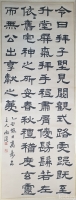 令日拜孔子望見闕觀式路虔跽既至
升堂屏氣拜手祗肅屑僾髣髴若在依
依舊宅神之所安春秋復禮稽度玄靈
而無公出享獻之薦